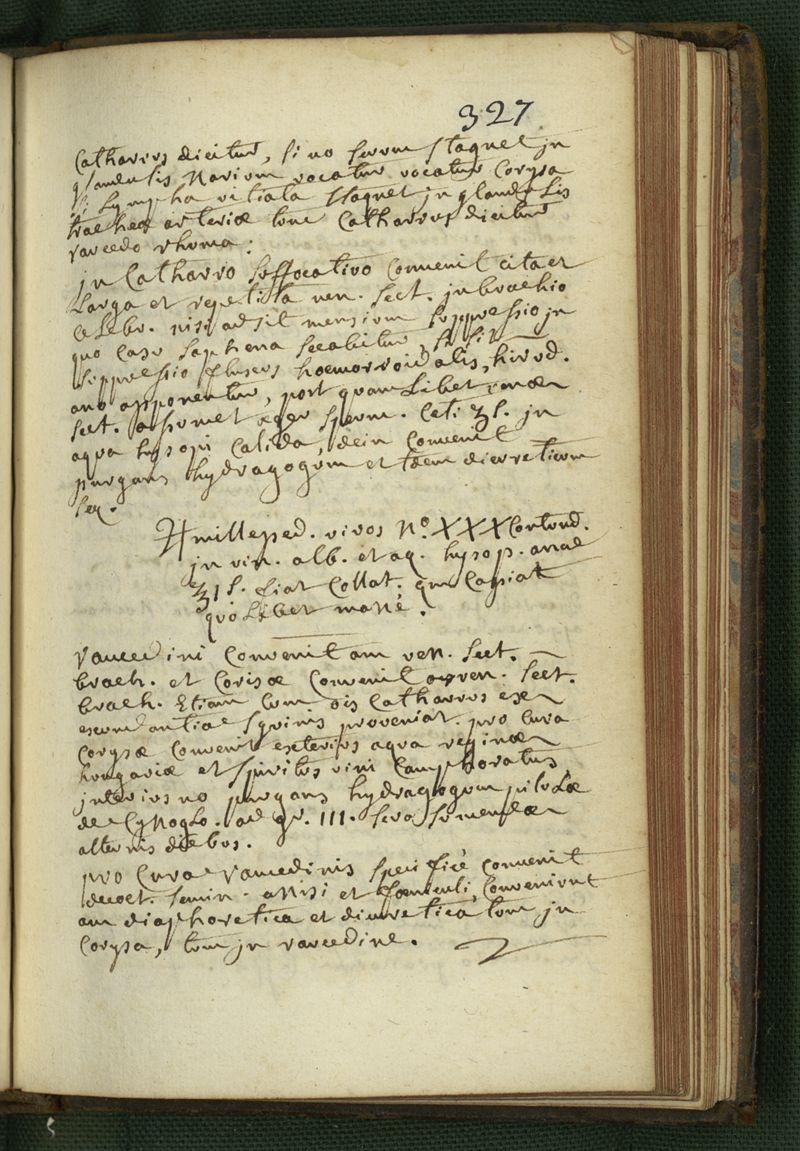 327
Catharrus dicitur, si vo serum stagnet in
glandulis Narium vocatur vocatur Corysa
si Lympha vitiata stagnet in glandulis
tracheae arteriae tunc Catharrus dicitur
raucedo rhuma:
jn Catharro suffocativo Convenit cita et
Larga et repetita ven. sect. in brachio
celebr. nisi adsit mensium suppressio in
quo Casu saphena secabitur, si sit
suppressio fluxus haemorroidalis, hirud.
ano apponentur, post quam Libet venae
sect. assumet aeger sperm. Ceti ʒ s. in
aqua hysopi Calida, dein Convenit
purgans hydragogum et tdem diureticum
seq.
♃ milleped. vivos No. XXX Contund.
in vin. alb. et aq. hysop. anae
ʒi s. fiat Collat. qm Capiat
quo Libet mane.
raucedini Convenit am ven. sect.
brach. et Corisae Convenit ven. sect.
brach. Etiam Cum ois Catharrus ex
exundantia sguinis proveniat. pro Cura
Corysae Convenit exterius aqua reginae
hungariae et spiritus vini Camphoratus
interius vo purgans hydragogum pilulae
de Cynoglo. ad gr. III. sero sumendae
alternis diebus.
pro Cura raucedinis specifice Convenit
decoct. semin. anisi et foeniculi, Conveniunt
am diaphoretica et diuretica tum in
Corysa, tum in raucedine.